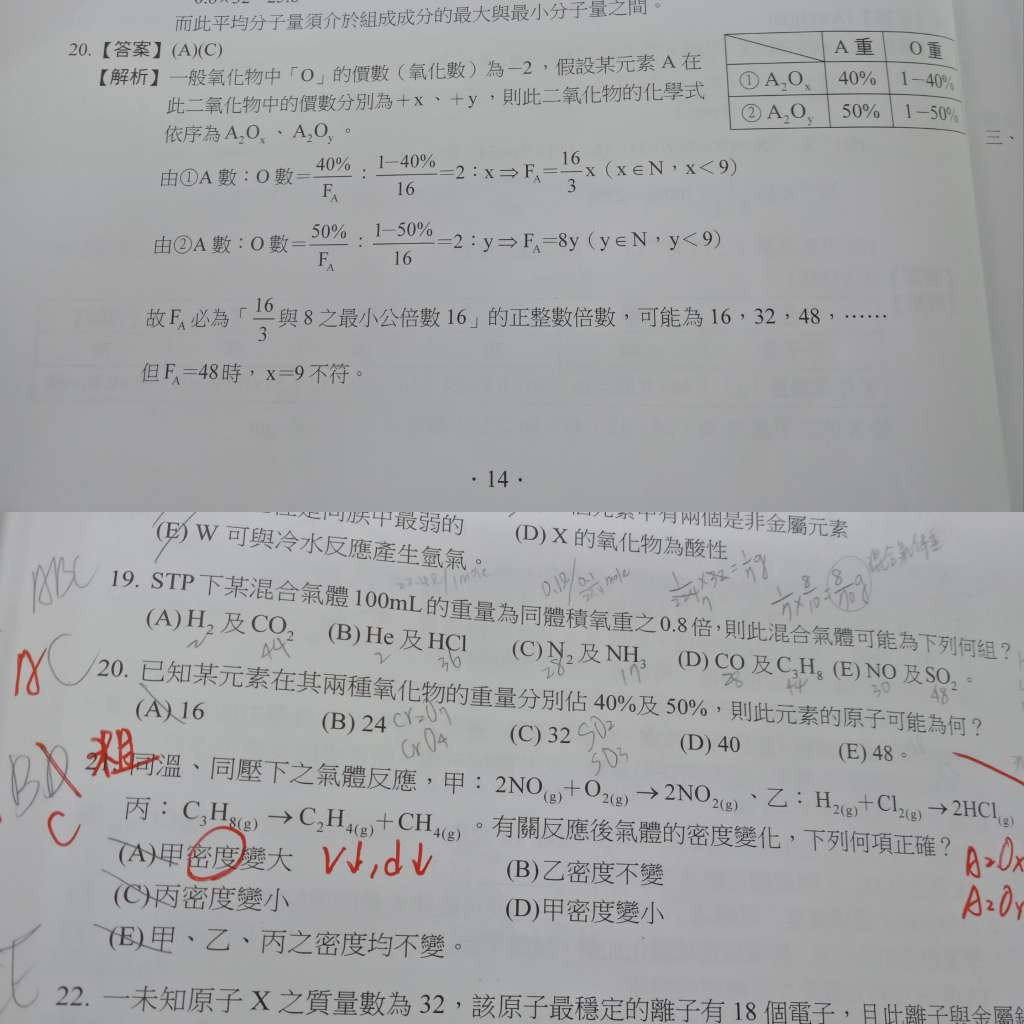 而此平均分子量須介於組成成分的最大與最小分子量之間。
20.【答案】(A)(C)
【解析】一般氧化物中「O」的價數（氧化數）為−2，假設某元素 A 在
此二氧化物中的價數分別為＋x、＋y，則此二氧化物的化學式
依序為 A₂Oₓ、A₂Oᵧ。
A 重 O 重
① A₂Oₓ 40% 1−40%
② A₂Oᵧ 50% 1−50%
三、
由①A 數：O 數＝40%/F_A：1−40%/16＝2：x ⇒ F_A＝16/3 x（x∈N，x＜9）
由②A 數：O 數＝50%/F_A：1−50%/16＝2：y ⇒ F_A＝8y（y∈N，y＜9）
故 F_A 必為「16/3 與 8 之最小公倍數 16」的正整數倍數，可能為 16，32，48，……
但 F_A＝48 時，x＝9 不符。
· 14 ·
(E) W 可與冷水反應產生氫氣。
(D) X 的氧化物為酸性
ABC
19. STP 下某混合氣體 100mL 的重量為同體積氧重之 0.8 倍，則此混合氣體可能為下列何組？
(A) H₂ 及 CO₂ (B) He 及 HCl (C) N₂ 及 NH₃ (D) CO 及 C₃H₈ (E) NO 及 SO₂。
44 2 36 28 17 28 44 30 48
AC
20. 已知某元素在其兩種氧化物的重量分別佔 40%及 50%，則此元素的原子可能為何？
(A) 16 (B) 24 (C) 32 (D) 40 (E) 48。
CrO₄ SO₂
SO₃
BD
粗
C
21. 同溫、同壓下之氣體反應，甲：2NO(g)＋O₂(g)→2NO₂(g)、乙：H₂(g)＋Cl₂(g)→2HCl(g)
丙：C₃H₈(g)→C₂H₄(g)＋CH₄(g)。有關反應後氣體的密度變化，下列何項正確？
(A)甲密度變大 V↓,d↓ (B)乙密度不變
A₂Ox
(C)丙密度變小 (D)甲密度變小
A₂Oy
(E)甲、乙、丙之密度均不變。
E
22. 一未知原子 X 之質量數為 32，該原子最穩定的離子有 18 個電子，且此離子與金屬